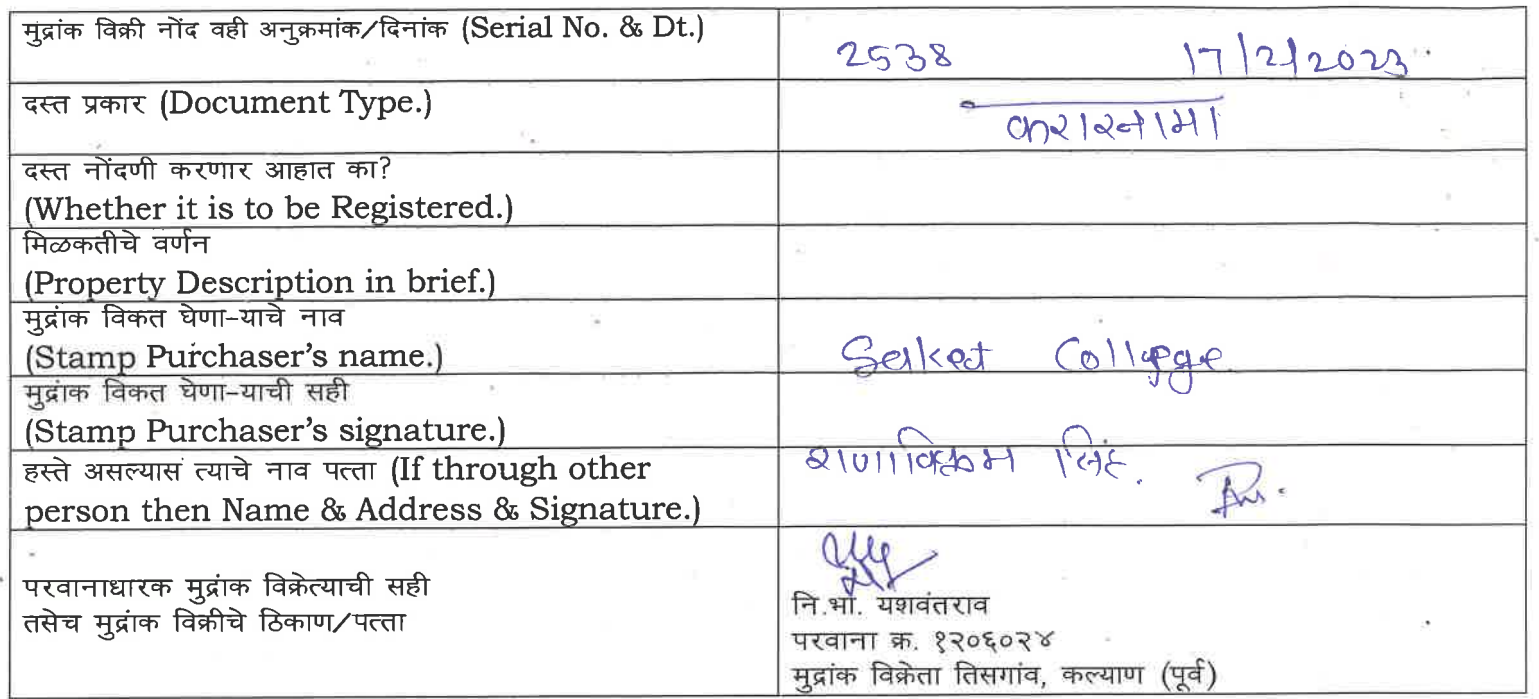 मुद्रांक विक्री नोंद वही अनुक्रमांक/दिनांक (Serial No. & Dt.)
2538 17/2/2023
दस्त प्रकार (Document Type.)
करारनामा
दस्त नोंदणी करणार आहात का?
(Whether it is to be Registered.)
मिळकतीचे वर्णन
(Property Description in brief.)
मुद्रांक विकत घेणा-याचे नाव
(Stamp Purchaser's name.)
Saket College
मुद्रांक विकत घेणा-याची सही
(Stamp Purchaser's signature.)
हस्ते असल्यास त्याचे नाव पत्ता (If through other
person then Name & Address & Signature.)
राणाविक्रम सिंह.
परवानाधारक मुद्रांक विक्रेत्याची सही
तसेच मुद्रांक विक्रीचे ठिकाण/पत्ता
नि.भा. यशवंतराव
परवाना क्र. १२०६०२४
मुद्रांक विक्रेता तिसगांव, कल्याण (पूर्व)